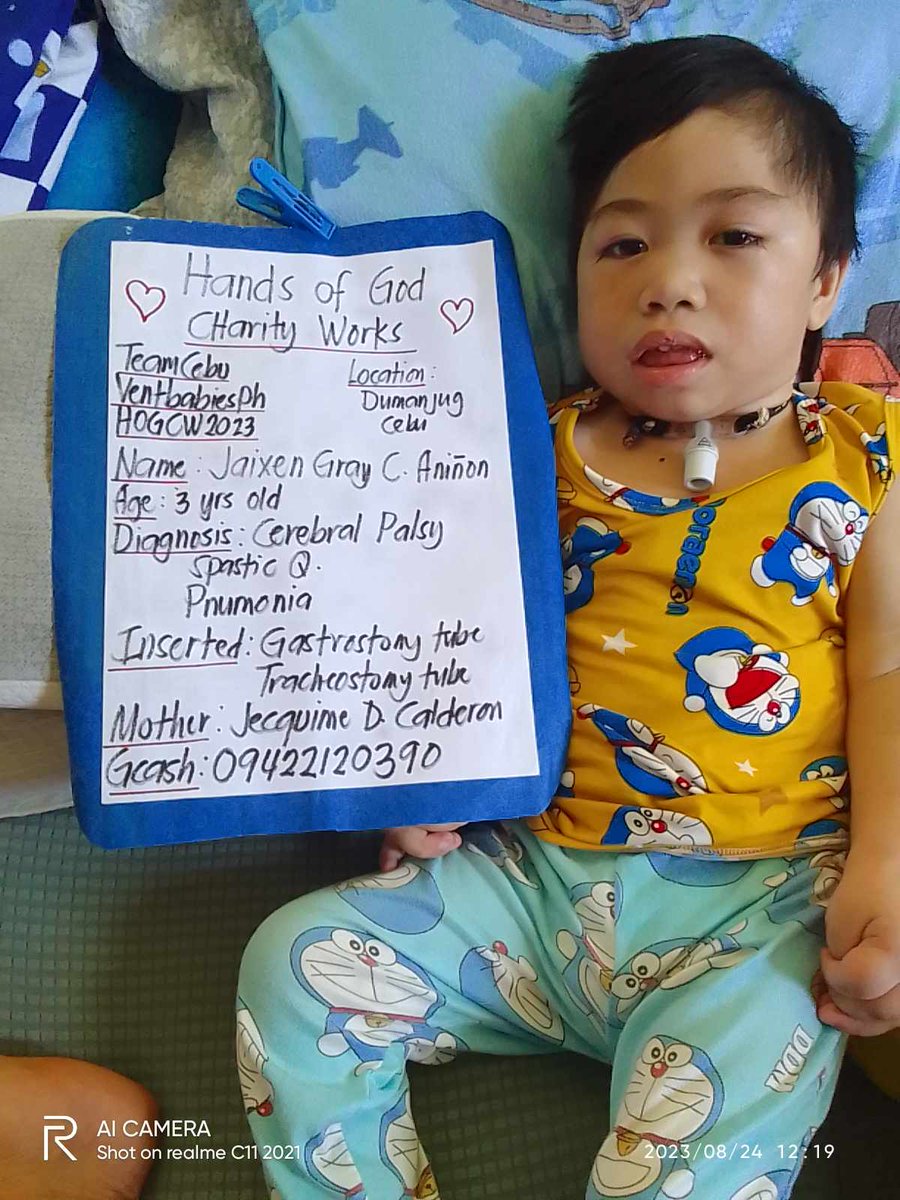 Hands of God
Charity Works
TeamCebu
VentbabiesPh
HOGCW2023
Location:
Dumanjug
Cebu
Name: Jaixen Gray C. Aniñon
Age: 3 yrs old
Diagnosis: Cerebral Palsy
Spastic Q.
Pnumonia
Inserted: Gastrostomy tube
Tracheostomy tube
Mother: Jecquime D. Calderon
Gcash: 09422120390
Doraemon
R
AI CAMERA
Shot on realme C11 2021
2023/08/24 12:19